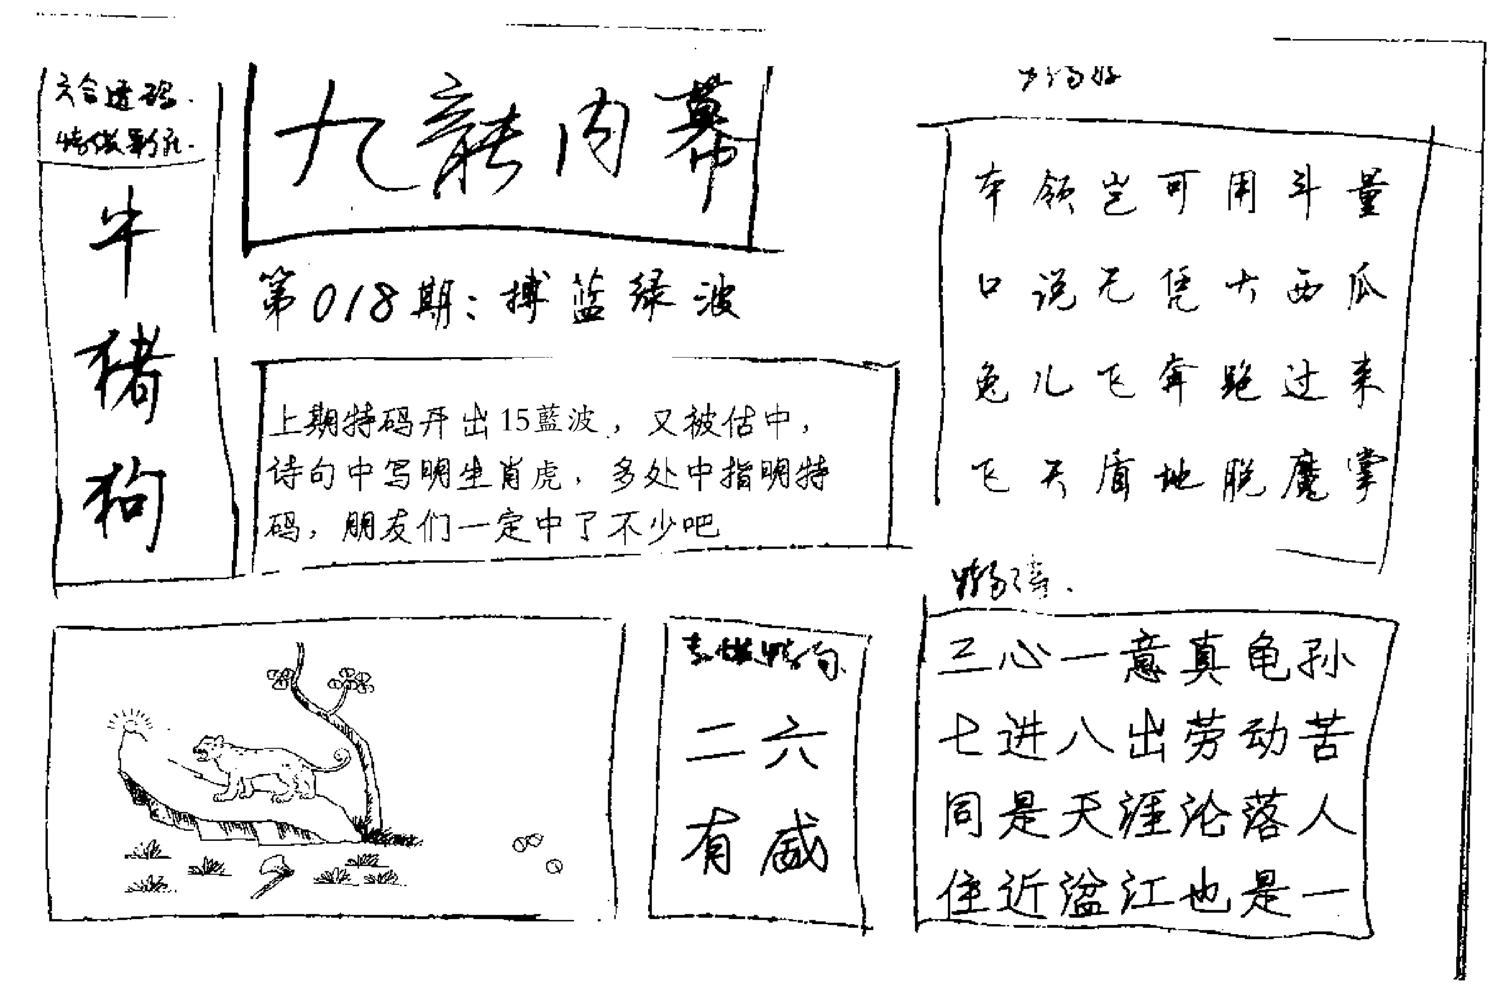 六合透码.
九龍内幕
牛
猪
狗
第018期：搏蓝绿波
上期特码开出15藍波，又被估中，
诗句中写明生肖虎，多处中指明特
码，朋友们一定中了不少吧
本领岂可用斗量
口说无凭大西瓜
兔儿飞奔跑过来
飞天盾地脱魔掌
二六
有威
三心一意真龟孙
七进八出劳动苦
同是天涯沦落人
住近湓江也是一